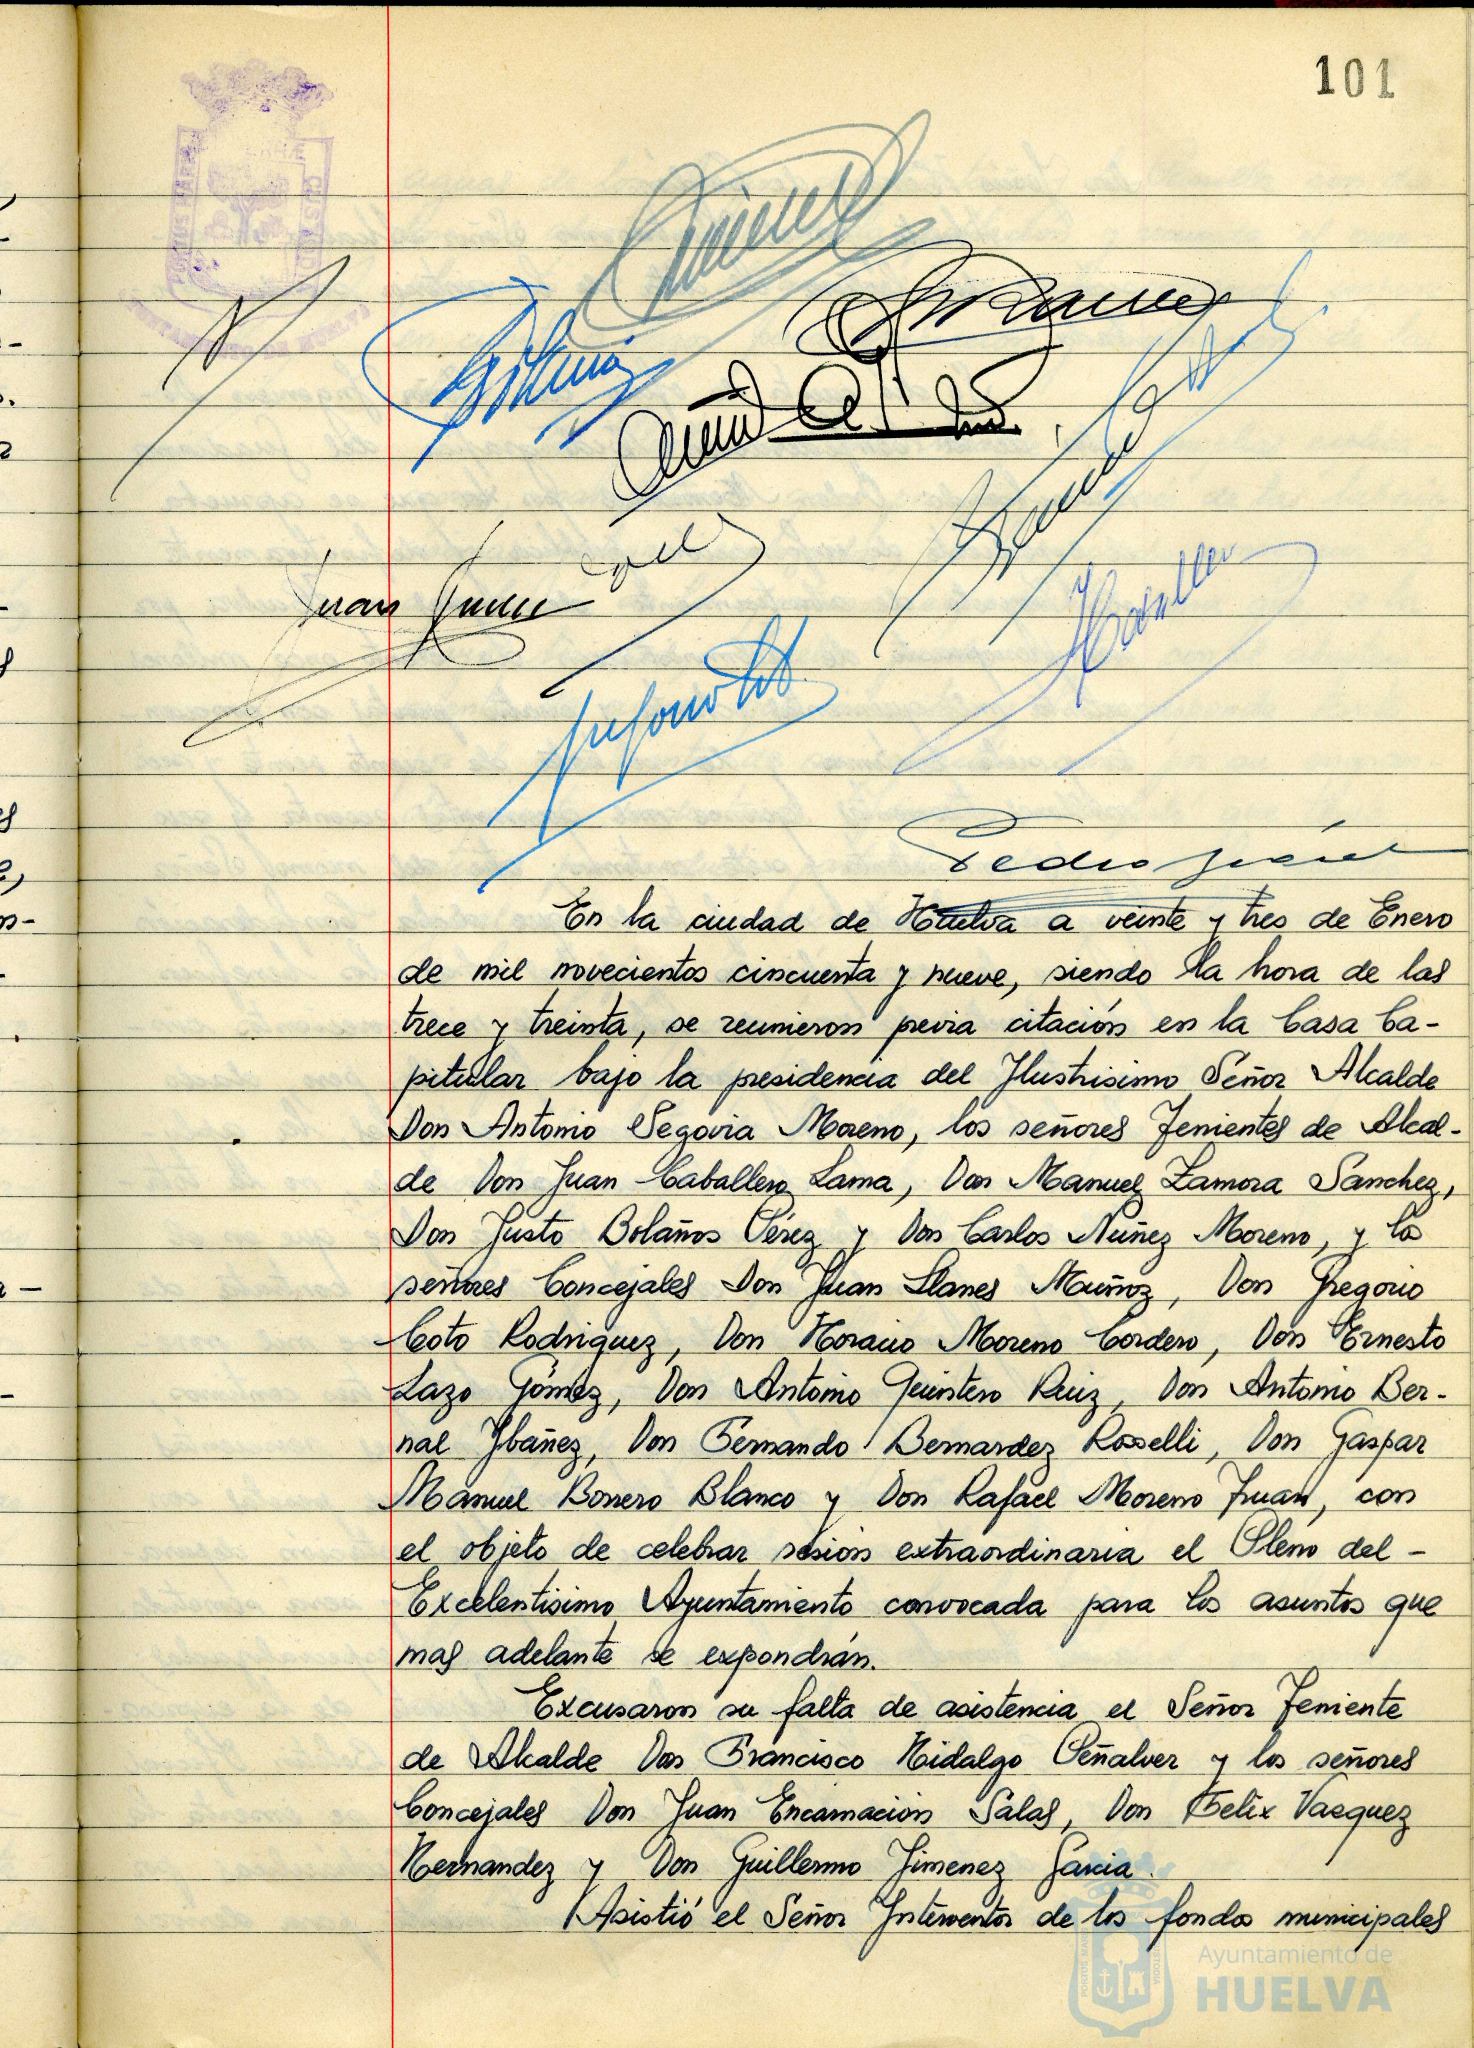 101
Juan
Pedro
En la ciudad de Huelva a veinte y tres de Enero
de mil novecientos cincuenta y nueve, siendo la hora de las
trece y treinta, se reunieron previa citación en la Casa Ca-
pitular bajo la presidencia del Ilustrisimo Señor Alcalde
Don Antonio Segovia Moreno, los señores Tenientes de Alcal-
de Don Juan Caballero Lama, Don Manuel Zamora Sanchez,
Don Justo Bolaños Pérez y Don Carlos Núñez Moreno, y los
señores Concejales Don Juan Llanes Muñoz, Don Gregorio
Coto Rodriguez, Don Horacio Moreno Cordero, Don Ernesto
Lazo Gómez, Don Antonio Quintero Ruiz, Don Antonio Ber-
nal Ybañez, Don Fernando Bernardez Rosselli, Don Gaspar
Manuel Borrero Blanco y Don Rafael Moreno Juan, con
el objeto de celebrar sesión extraordinaria el Pleno del -
Excelentisimo Ayuntamiento convocada para los asuntos que
mas adelante se expondrán.
Excusaron su falta de asistencia el Señor Teniente
de Alcalde Don Francisco Hidalgo Peñalver y los señores
Concejales Don Juan Encarnación Salas, Don Felix Vazquez
Hernandez y Don Guillermo Jimenez Garcia.
Asistió el Señor Interventor de los fondos municipales
Ayuntamiento de
HUELVA